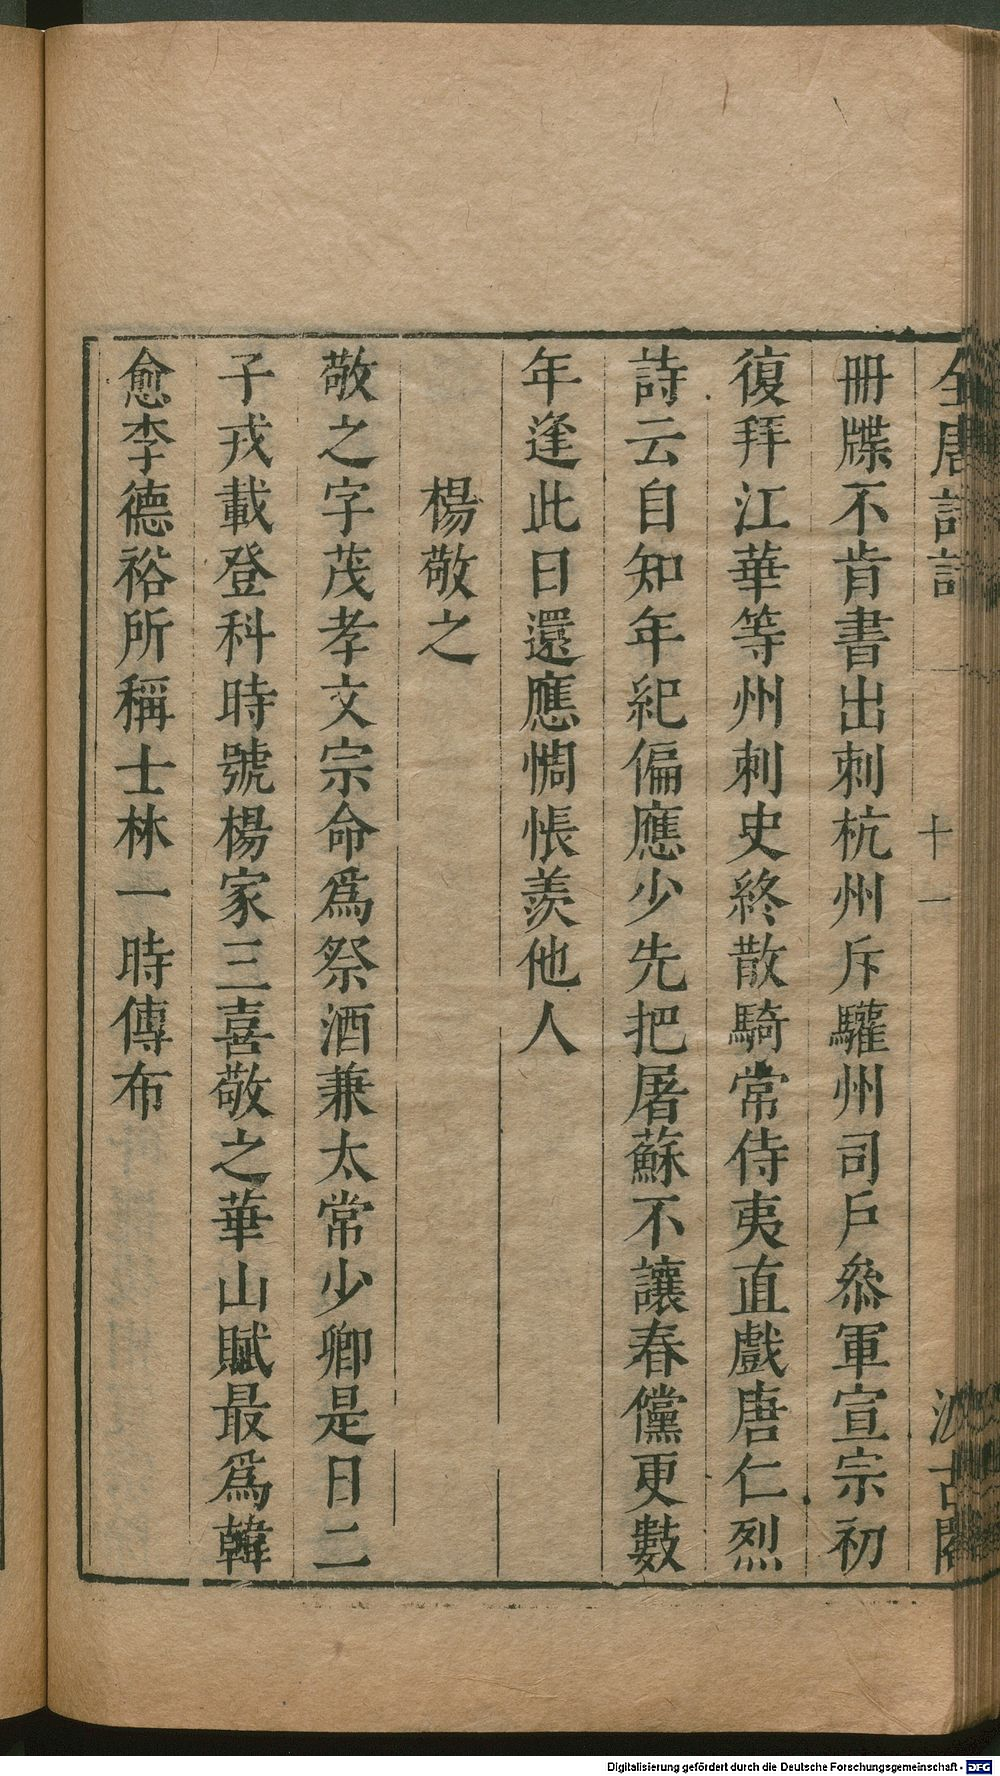 全唐詩話
十一
汲古閣
冊牒不肯書出刺杭州斥驩州司戶叅軍宣宗初
復拜江華等州刺史終散騎常侍夷直戲唐仁烈
詩云自知年紀偏應少先把屠蘇不讓春儻更數
年逢此日還應惆悵羨他人
楊敬之
敬之字茂孝文宗命爲祭酒兼太常少卿是日二
子戎載登科時號楊家三喜敬之華山賦最爲韓
愈李德裕所稱士林一時傳布
Digitalisierung gefördert durch die Deutsche Forschungsgemeinschaft - DFG